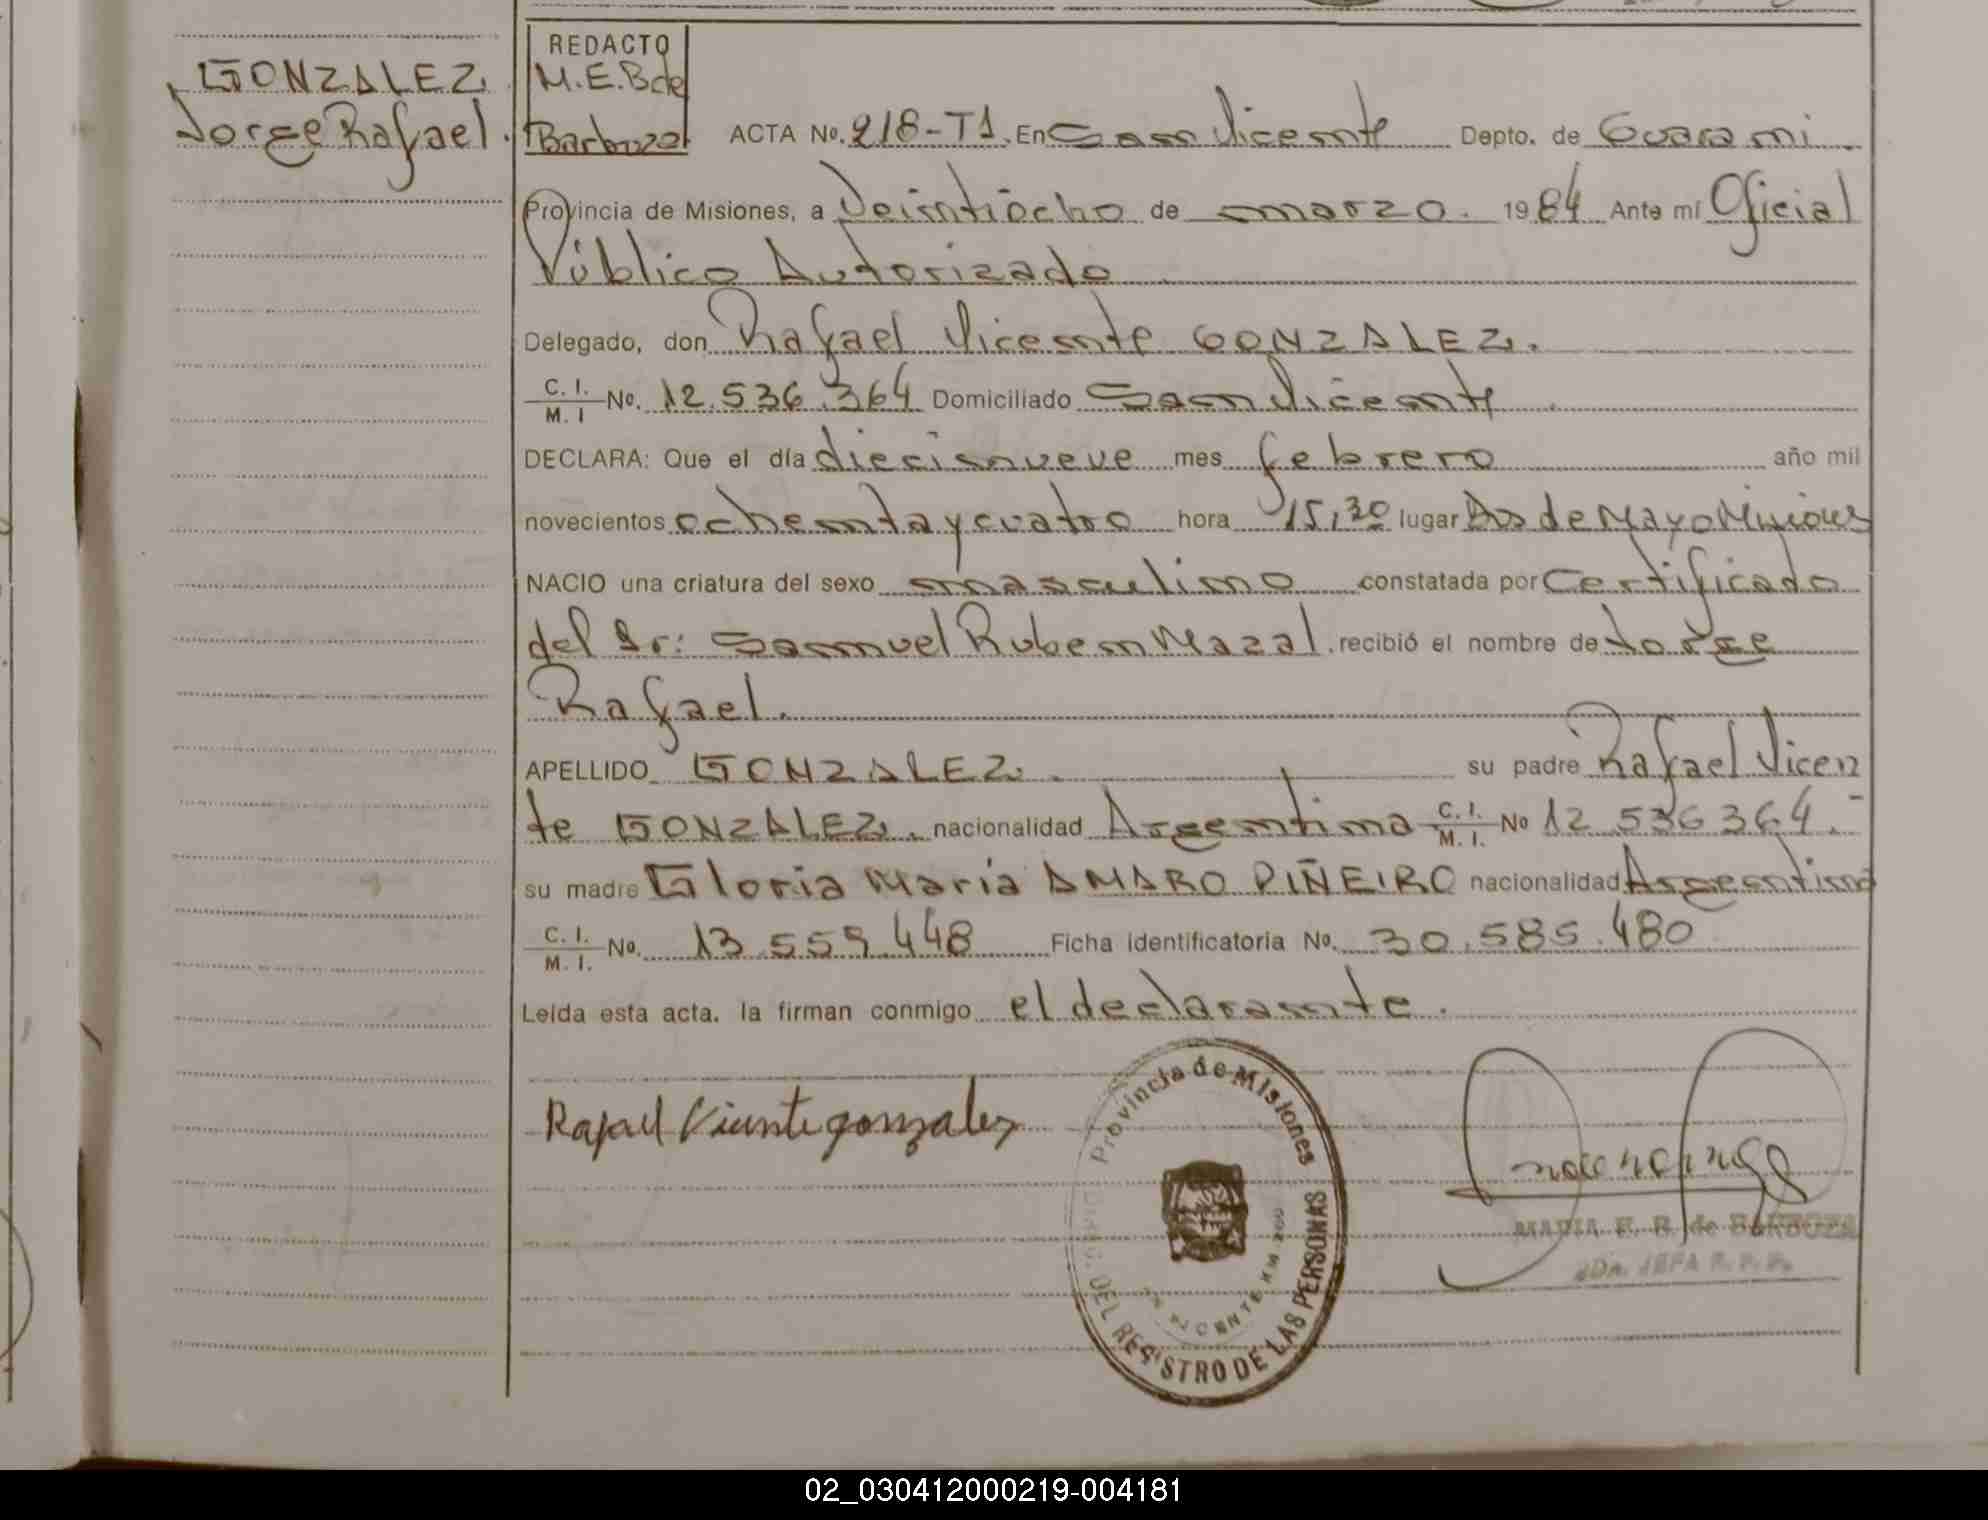 GONZALEZ
Jorge Rafael.
REDACTO
M.E.B de
Barboza
ACTA No. 218-T1. En San Vicente Depto. de Guarani.
Provincia de Misiones, a Veintiocho de marzo. 1984 Ante mí Oficial
Público Autorizado
Delegado, don Rafael Vicente GONZALEZ.
C. I. / M. I No. 12.536.364 Domiciliado San Vicente
DECLARA: Que el día diecisnueve mes febrero año mil
novecientos ochenta y cuatro hora 15,30 lugar Dos de Mayo Misiones
NACIO una criatura del sexo masculino constatada por Certificado
del Dr: Samuel Ruben Mazal. recibió el nombre de Jorge
Rafael.
APELLIDO GONZALEZ. su padre Rafael Vicen
te GONZALEZ. nacionalidad Argentina C. I. / M. I. No 12 536 364.-
su madre Gloria María AMARO PIÑEIRO nacionalidad Argentina
C. I. / M. I. No. 13.559.448 Ficha identificatoria No. 30.585.480
Leída esta acta. la firman conmigo el declarante.
Rafael Vicente gonzalez
Provincia de Misiones
DEL REGISTRO DE LAS PERSONAS
MARIA E. B. de BARBOZA
JEFA R. P. P.
02_030412000219-004181